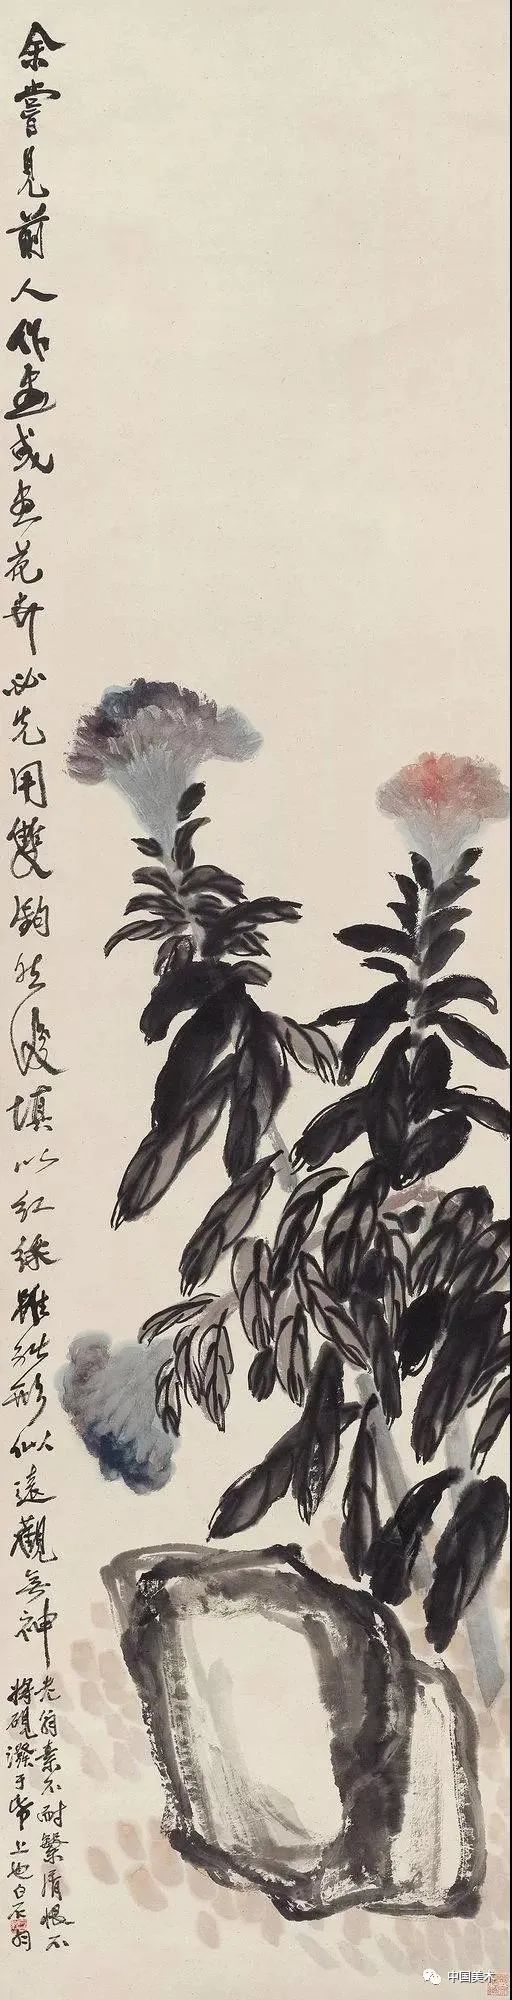 余嘗見前人作畫或畫花卉必先用雙鈎然後填以紅綠雖能形似遠觀無神
老翁素不耐繁屑恨不
將硯潑于帋上也白石翁
中国美术